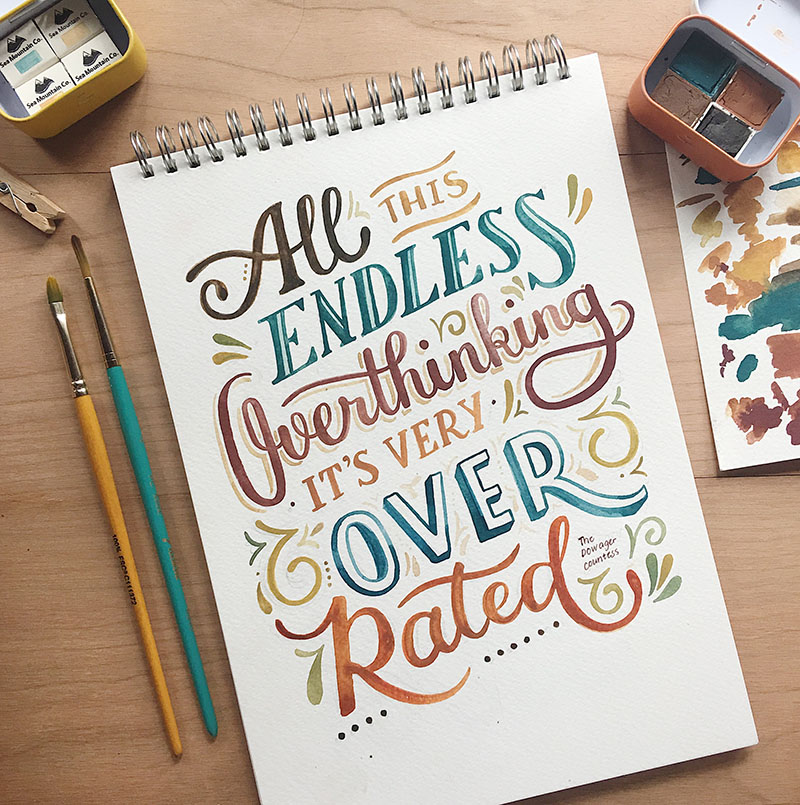 Sea Mountain Co.
Sea Mountain Co.
Sea Mountain Co.
Sea Mountain Co.
All THIS
ENDLESS
Overthinking
IT'S VERY
OVER
Rated
The
Dowager
Countess